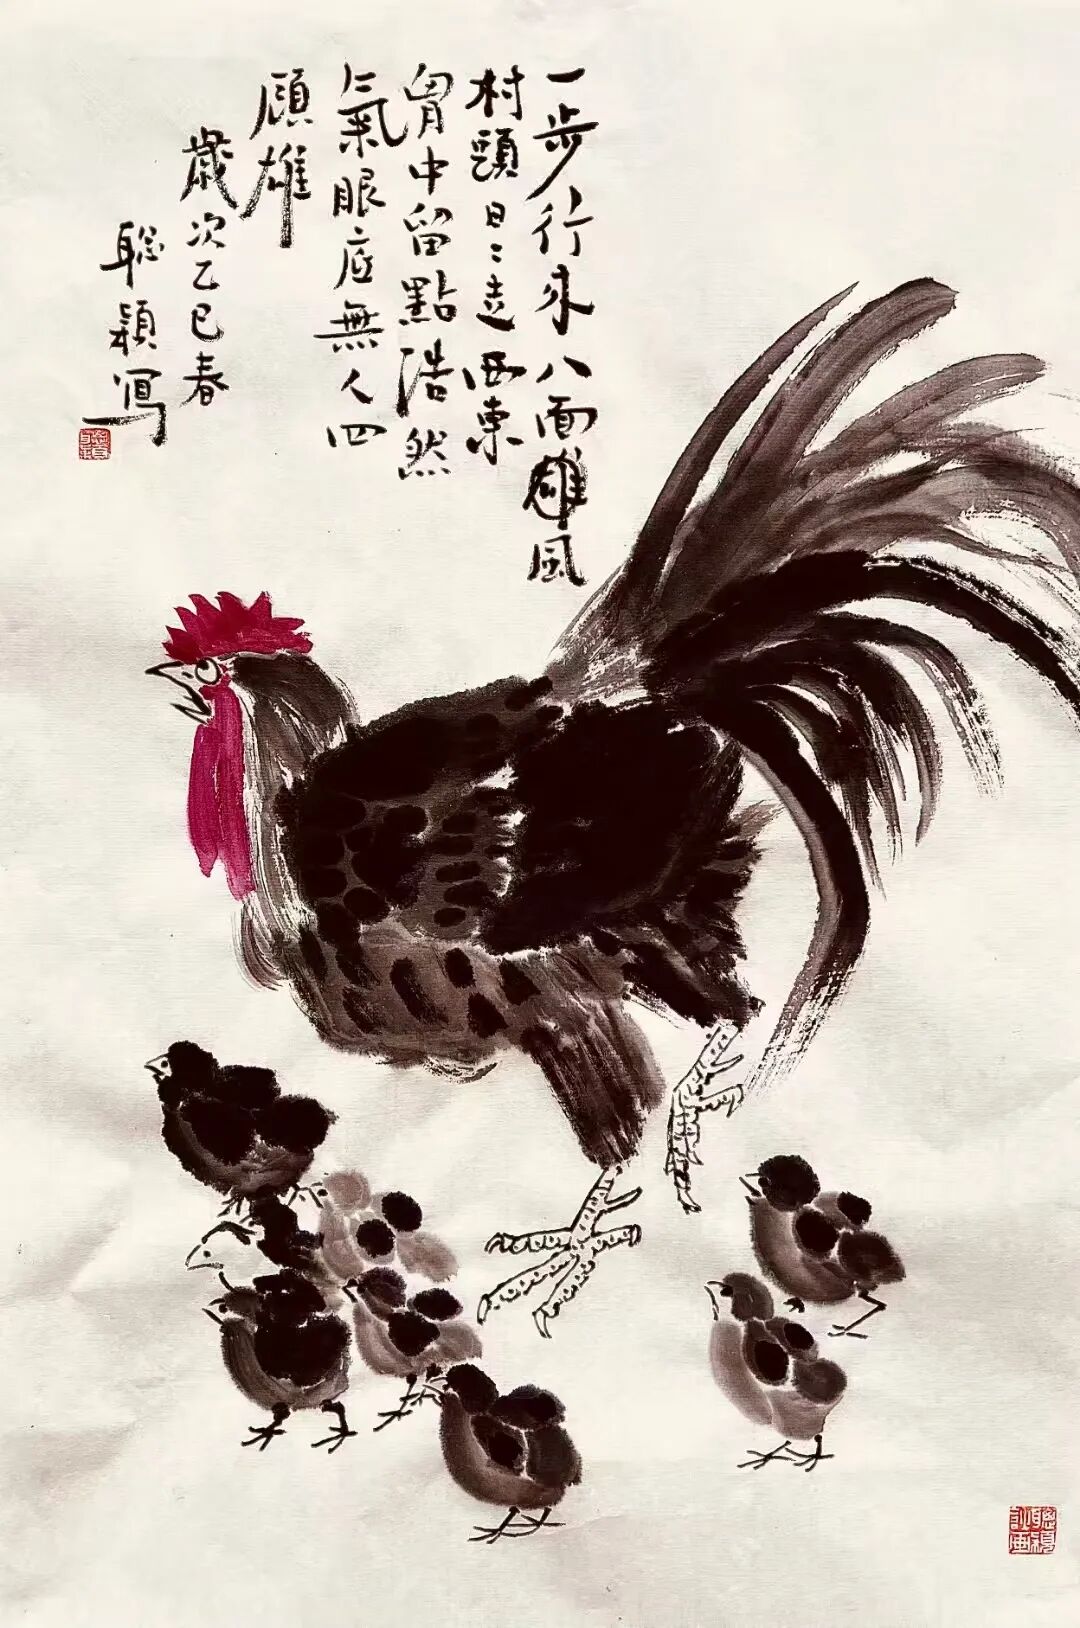 一步行来八面雄風
村頭日〻走西東
胷中留點浩然
氣眼底無人四
顾雄
歲次乙巳春
聪颖寫